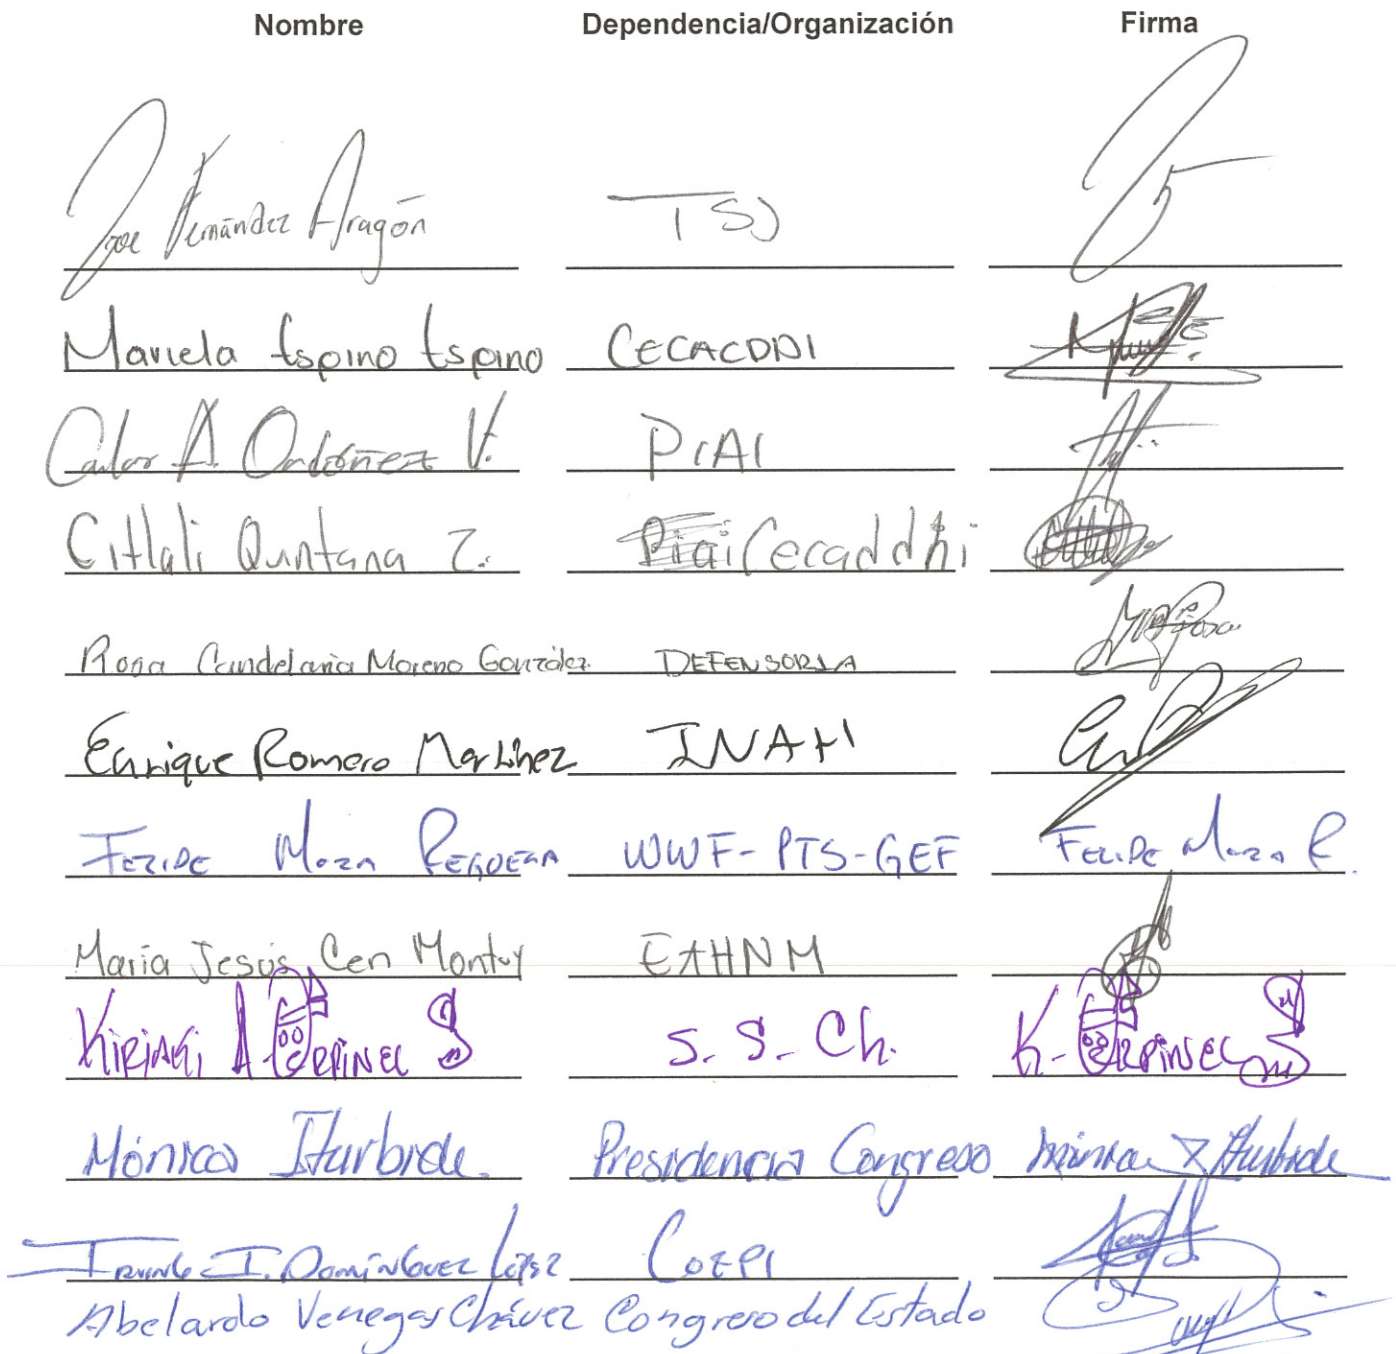 Nombre Dependencia/Organización Firma
José Fernández Aragón TSJ
Mariela Espino Espino CECACDDI
Carlos A. Ordóñez V. PIAI
Citlali Quintana Z. Cecaddhi
Rosa Candelaria Moreno González DEFENSORIA
Enrique Romero Martínez INAH
FELIPE Moza REGUERA WWF-PTS-GEF FELIPE Moza R.
María Jesús Cen Montuy EAHNM
KIRIAKI A ORPINEL S. S. Ch. K- ORPINEL
Mónica Iturbide. Presidencia Congreso Mónica Iturbide
I. Domínguez López COEPI
Abelardo Venegas Chávez Congreso del Estado